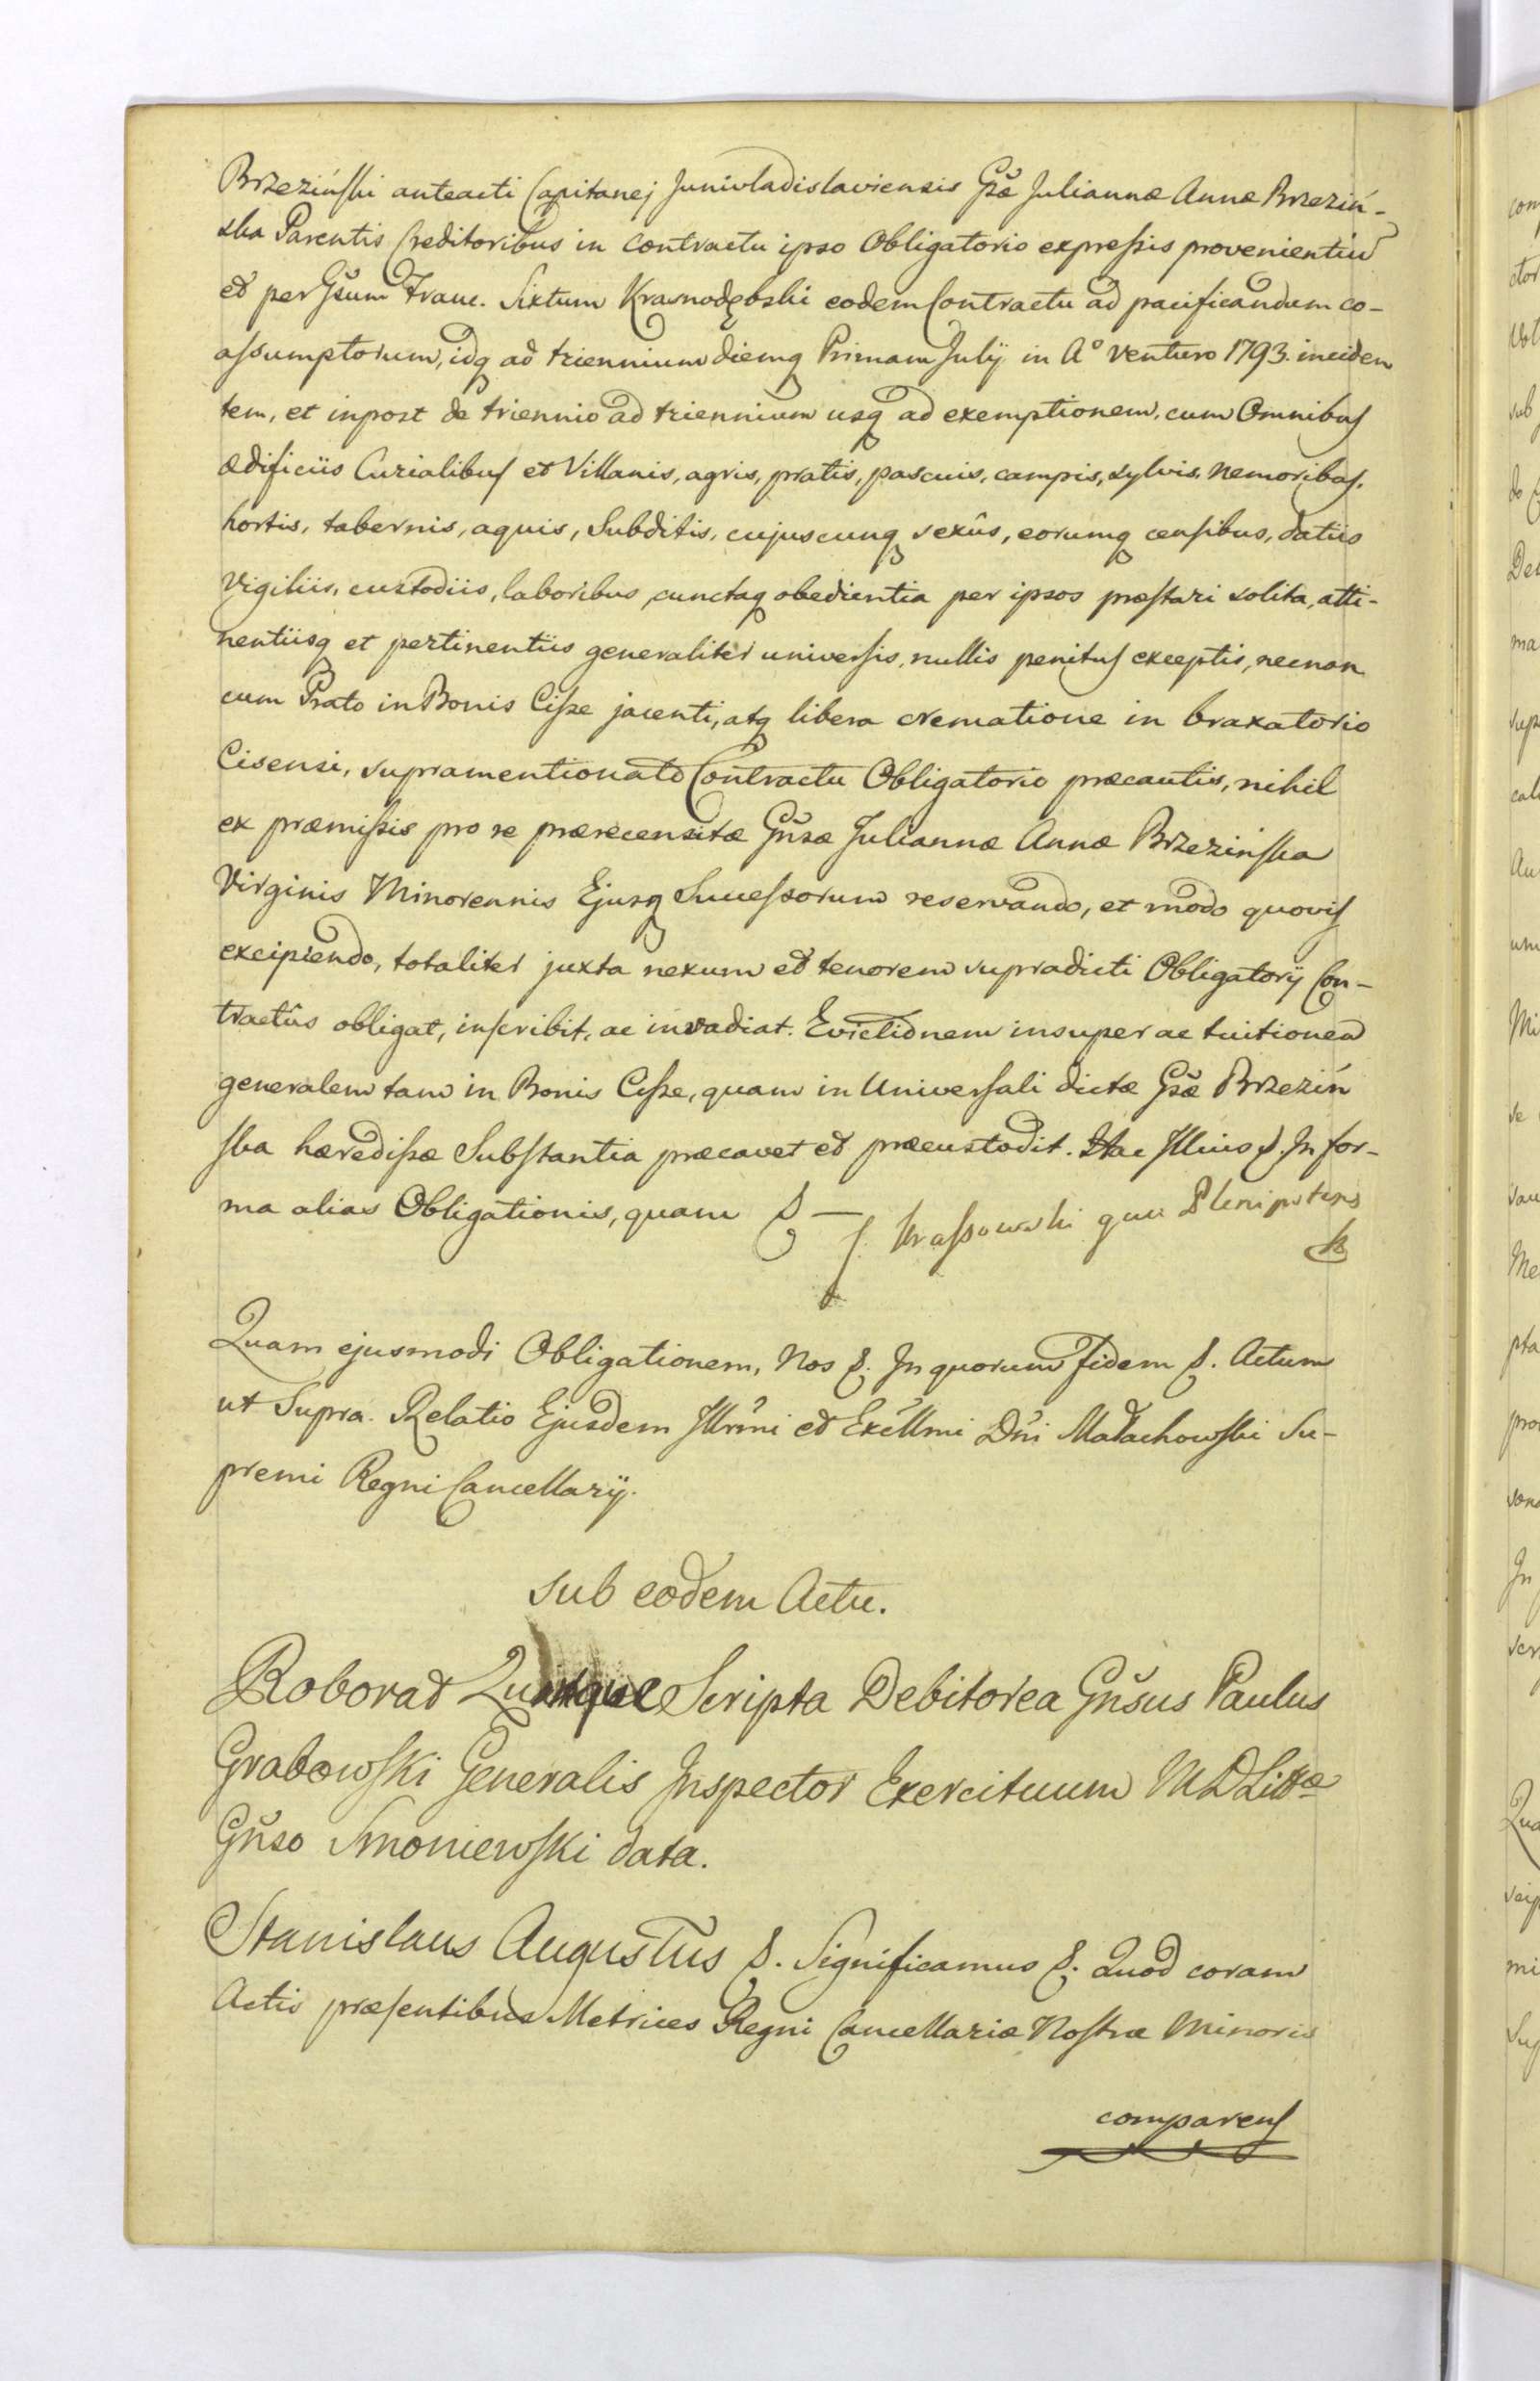 Brzezińſki anteacti Capitanej Junivladislaviensis Gsæ Juliannæ Annæ Brzeziń-
ska Parentis Creditoribus in contractu ipso Obligatorio expreſsis provenientiū
et per Gsum Franc. Sixtum Krasnodębski eodem Contractu ad pacificandum co-
aſsumptorum, idq ad triennium diemq Primam Julÿ in Aº venturo 1793. inciden
tem, et inpost de triennio ad triennium usq ad exemptionem, cum Omnibuſ
ædificiis Curialibuſ et Villanis, agris, pratis, pascuis, campis, sylvis, nemoribuſ.
hortis, tabernis, aquis, Subditis, cujuscunq sexûs, eorumq cenſibus, datiis
vigiliis, custodiis, laboribus, cunctaq obedientia per ipsos præſtari solita, atti-
nentiisq et pertinentiis generaliter universis, nullis penituſ exceptis, necnon
cum Prato in Bonis Ciſze jacenti, atq libera crematione in braxatorio
Cisensi, supramentionato Contractu Obligatorio præcautis, nihil
ex præmiſsis pro se prærecensitæ Gñsæ Juliannæ Annæ Brzezińſka
Virginis Minorennis Ejusq Succeſsorum reservando, et modo quoviſ
excipiendo, totaliter juxta nexum et tenorem supradicti Obligatorÿ Con-
tractûs obligat, inſcribit, ac invadiat. Evictionem insuper ac tuitionem
generalem tam in Bonis Ciſze, quam in Univerſali dictæ Gsæ Brzeziń
ſka hærediſsæ Subſtantia præcavet et præcustodit. Hac Illius &. In for-
ma alias Obligationis, quam & —
J Kraſsowski qua Plenipotens
Quam ejusmodi Obligationem, Nos &. In quorum fidem &. Actum
ut Supra. Relatio Ejusdem Illrmi et Excllmi Dñi Małachowſki Su-
premi Regni Cancellarÿ.
Sub eodem Actu.
Roborat Quinque Scripta Debitorea Gñsus Paulus
Grabowſki Generalis Inspector Exercituum M D Littæ
Gñso Smoniewſki data.
Stanislaus Augustus &. Significamus &. Quod coram
Actis præſentibus Metrices Regni Cancellariæ Noſtræ Minoris
compareuſ